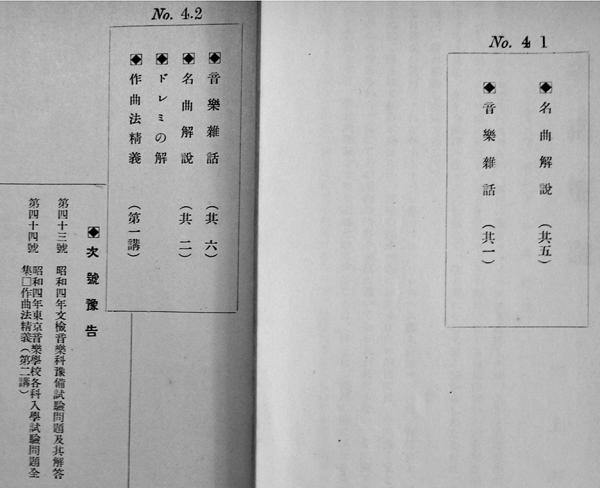 No. 4 1
◆名曲解說 (其五)
◆音樂雜話 (其一)
No. 4.2
◆音樂雜話 (其六)
◆名曲解說 (其二)
◆ドレミの解
◆作曲法精義 (第一講)
◆次號豫告
第四十三號 昭和四年文檢音樂科豫備試驗問題及其解答
第四十四號 昭和四年東京音樂學校各科入學試驗問題全
集□作曲法精義(第二講)